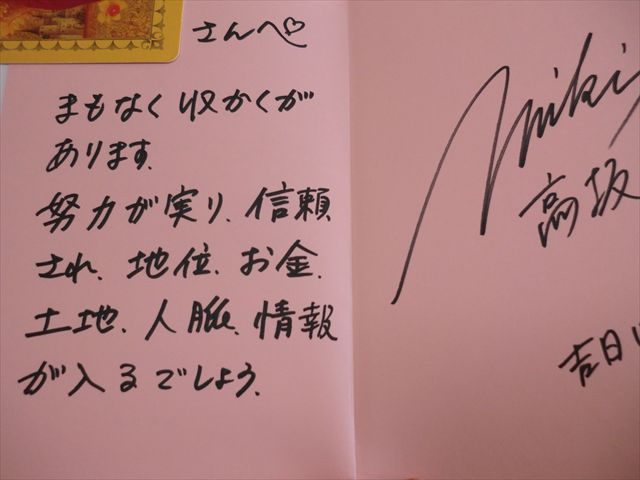 さんへ♡
まもなく収かくが
あります.
努力が実り、信頼
され、地位、お金、
土地、人脈、情報
が入るでしょう.
miki
高坂
吉日